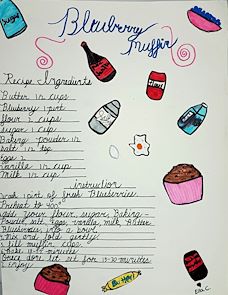 Blueberry
Muffin
Recipe Ingredients
Butter 1/2 cups
Blueberry 1 pint
flour 2 cups
sugar 1 cup
Baking powder
salt 1/2 tsp
Eggs 2
Vanilla
Milk 1/2 cup
instruction
1 pint of fresh Blueberries
Preheat to 400°
add your flour, sugar, Baking-
Powder, salt, Eggs, Vanilla, Milk, Butter
Blueberries into a bowl
Mix and fold gently
fill muffin cups
Bake
Once done let sit for 15-30 minutes
Enjoy
Butter
Ella C.